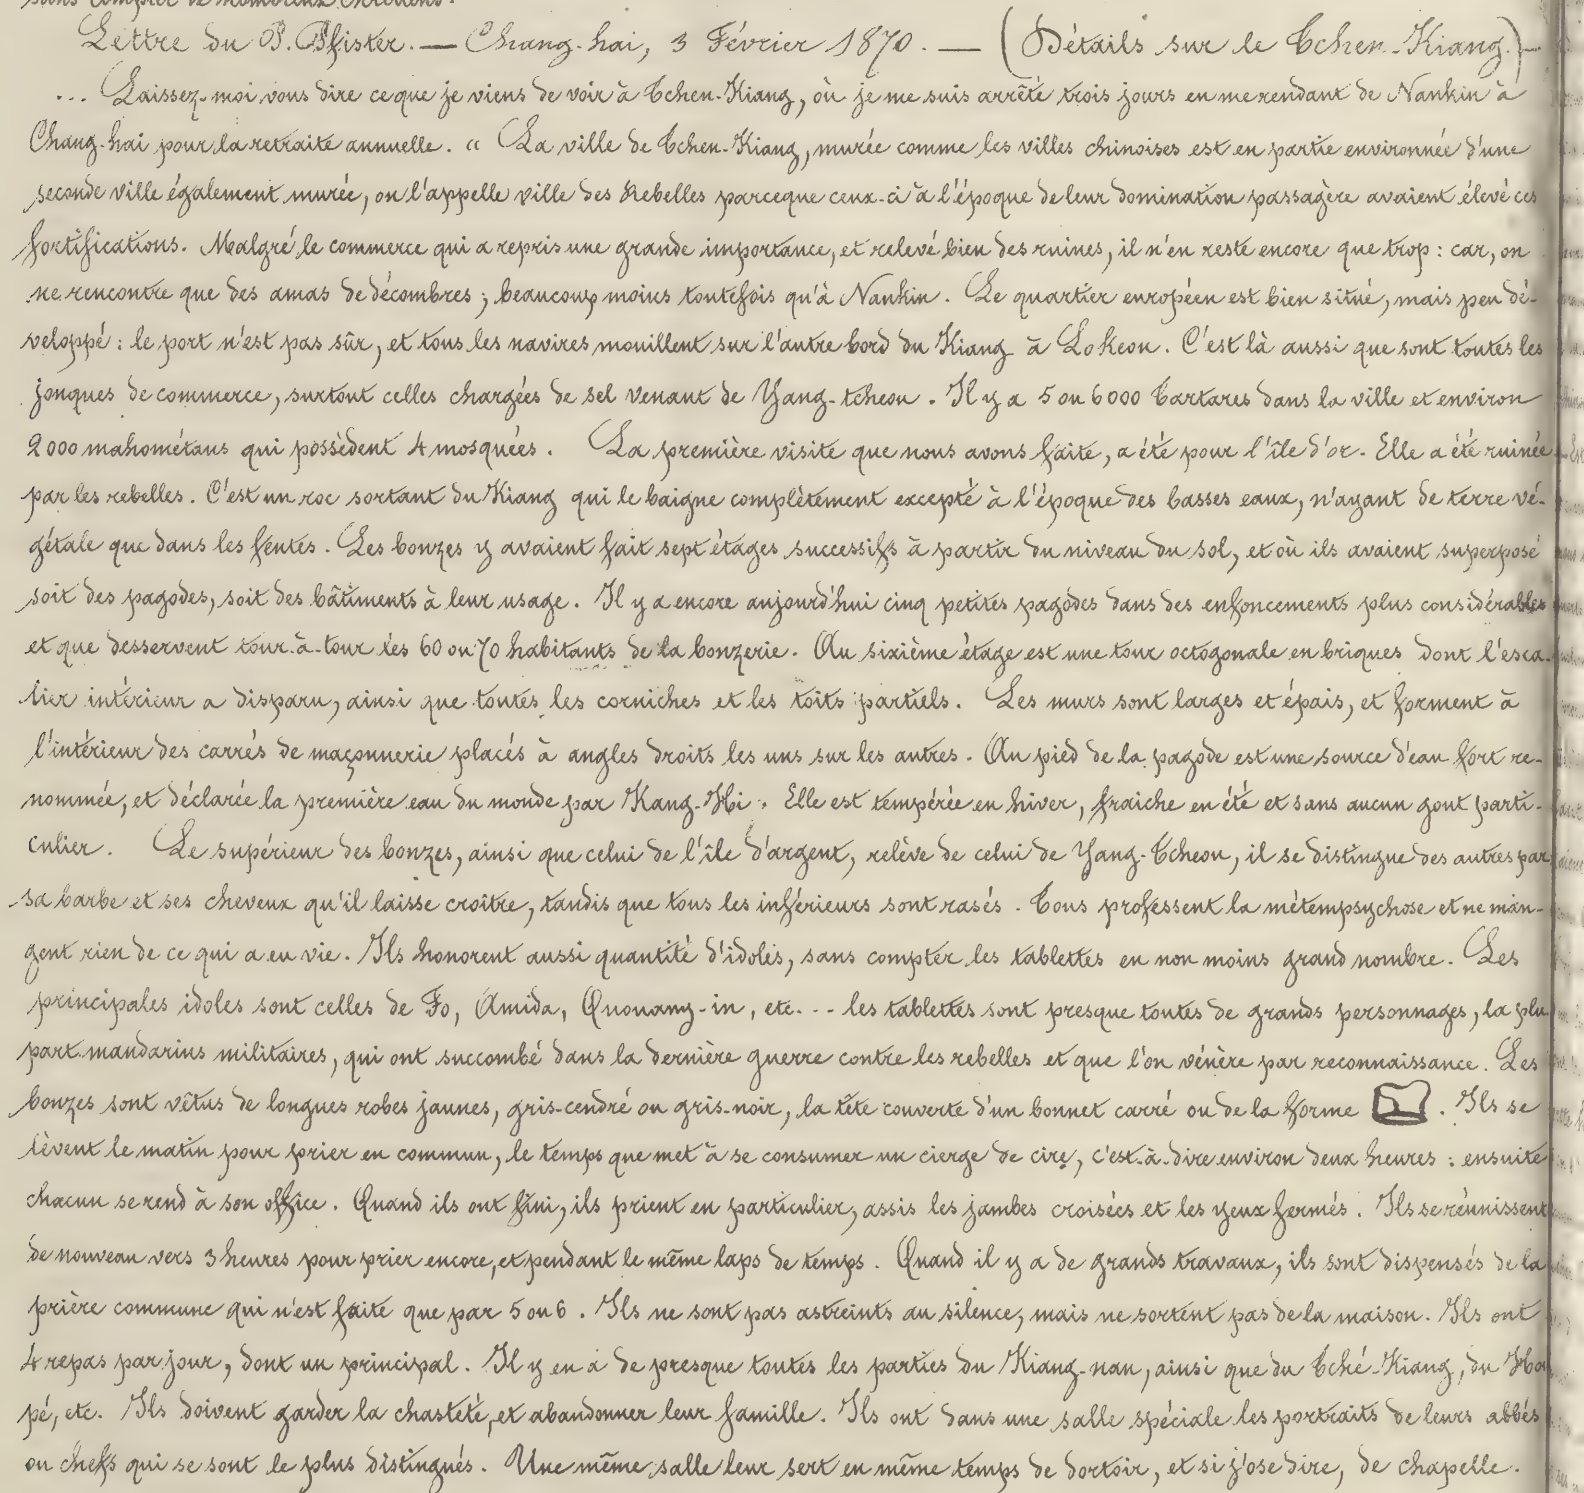 sans compter de nombreux chrétiens.
Lettre du P. Pfister. — Chang-hai, 3 Février 1870. — (Détails sur le Tchen-Kiang.) —
... Laissez-moi vous dire ce que je viens de voir à Tchen-Kiang, où je me suis arrêté trois jours en me rendant de Nankin à
Chang-hai pour la retraite annuelle. « La ville de Tchen-Kiang, murée comme les villes chinoises est en partie environnée d'une
seconde ville également murée, on l'appelle ville des Rebelles parceque ceux-ci à l'époque de leur domination passagère avaient élevé ces
fortifications. Malgré le commerce qui a repris une grande importance, et relevé bien des ruines, il n'en reste encore que trop : car, on
ne rencontre que des amas de décombres ; beaucoup moins toutefois qu'à Nankin. Le quartier européen est bien situé, mais peu dé-
veloppé : le port n'est pas sûr, et tous les navires mouillent sur l'autre bord du Kiang à LoKeou. C'est là aussi que sont toutes les
jonques de commerce, surtout celles chargées de sel venant de Yang-tcheou. Il y a 5 ou 6000 Tartares dans la ville et environ
2000 mahométans qui possèdent 4 mosquées. La première visite que nous avons faite, a été pour l'île d'or. Elle a été ruinée
par les rebelles. C'est un roc sortant du Kiang qui le baigne complètement excepté à l'époque des basses eaux, n'ayant de terre vé-
gétale que dans les fentes. Les bonzes y avaient fait sept étages successifs à partir du niveau du sol, et où ils avaient superposé
soit des pagodes, soit des bâtiments à leur usage. Il y a encore aujourd'hui cinq petites pagodes dans des enfoncements plus considérables
et que desservent tour-à-tour les 60 ou 70 habitants de la bonzerie. Au sixième étage est une tour octogonale en briques dont l'esca-
lier intérieur a disparu, ainsi que toutes les corniches et les toits partiels. Les murs sont larges et épais, et forment à
l'intérieur des carrés de maçonnerie placés à angles droits les uns sur les autres. Au pied de la pagode est une source d'eau fort re-
nommée, et déclarée la première eau du monde par Kang-Hi. Elle est tempérée en hiver, fraiche en été et sans aucun gout parti-
culier. Le supérieur des bonzes, ainsi que celui de l'île d'argent, relève de celui de Yang-Tcheou, il se distingue des autres par
sa barbe et ses cheveux qu'il laisse croître, tandis que tous les inférieurs sont rasés. Tous professent la métempsychose et ne man-
gent rien de ce qui a eu vie. Ils honorent aussi quantité d'idoles, sans compter les tablettes en non moins grand nombre. Les
principales idoles sont celles de Fo, Amida, Quouang-in, etc... les tablettes sont presque toutes de grands personnages, la plu
part mandarins militaires, qui ont succombé dans la dernière guerre contre les rebelles et que l'on vénère par reconnaissance. Les
bonzes sont vêtus de longues robes jaunes, gris-cendré ou gris-noir, la tête couverte d'un bonnet carré ou de la forme . Ils se
lèvent le matin pour prier en commun, le temps que met à se consumer un cierge de cire, c'est-à-dire environ deux heures : ensuite
chacun se rend à son office. Quand ils ont fini, ils prient en particulier, assis les jambes croisées et les yeux fermés. Ils se réunissent
de nouveau vers 3 heures pour prier encore, et pendant le même laps de temps. Quand il y a de grands travaux, ils sont dispensés de la
prière commune qui n'est faite que par 5 ou 6. Ils ne sont pas astreints au silence, mais ne sortent pas de la maison. Ils ont
4 repas par jour, dont un principal. Il y en a de presque toutes les parties du Kiang-nan, ainsi que du Tché-Kiang, du Ho
pé, etc. Ils doivent garder la chasteté, et abandonner leur famille. Ils ont dans une salle spéciale les portraits de leurs abbés
ou chefs qui se sont le plus distingués. Une même salle leur sert en même temps de dortoir, et si j'ose dire, de chapelle.